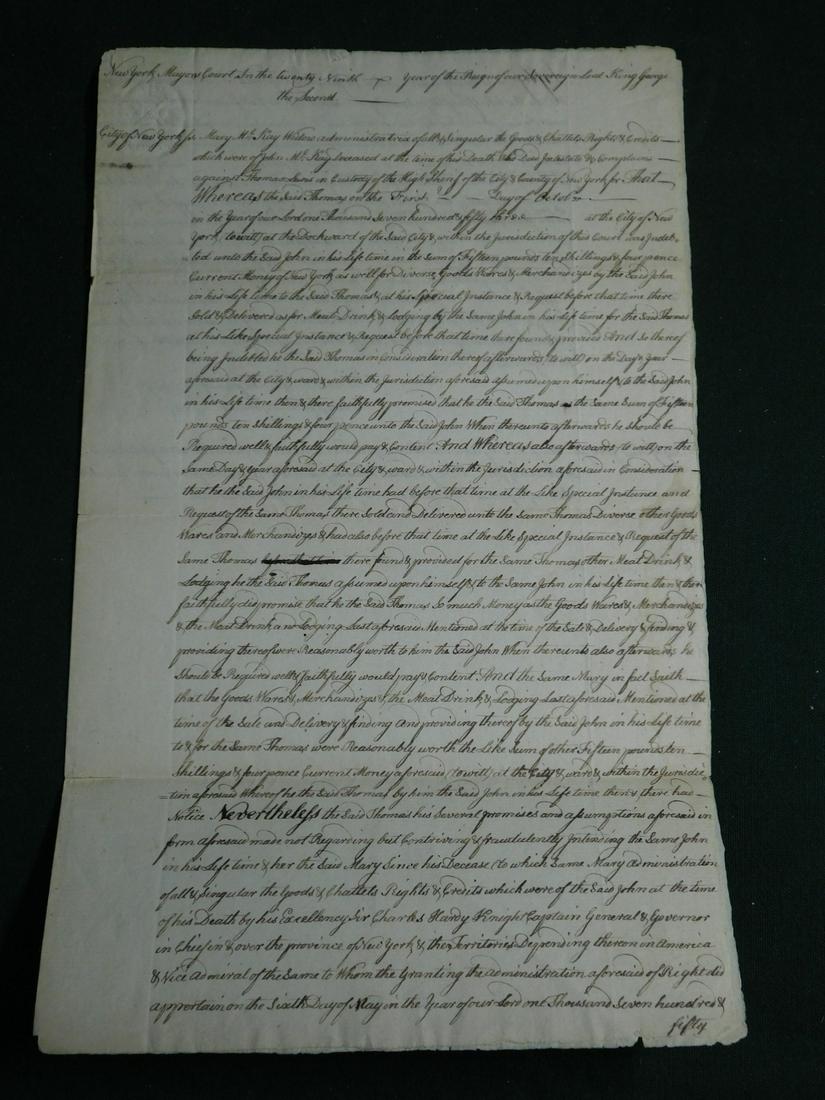 New York Mayors Court In the twenty Ninth Year of the Reign of our Sovereign Lord King George
the Second
City of New York ss Mary Mc Kay Widow administratrix of all & Singular the Goods & Chattels Rights & Credits
which were of John Mc Kay Deceased at the time of his Death Who Died Intestate & Complains
against Thomas in Custody of the High Sherif of the City & County of New York for That
Whereas the Said Thomas on the First Day of October
in the Year of our Lord one Thousand Seven hundred & fifty three at the City of New
York, to wit) at the Dockward of the Said City & within the Jurisdiction of this Court was Indeb-
ted unto the Said John in his Life time in the Sum of Fifteen pounds ten Shillings & four pence
Current Money of New York as well for Diverse Goods Wares & Merchandizes by the Said John
in his Life time to the Said Thomas & at his Special Instance & Request before that time there
Sold & Delivered as for Meat Drink & Lodging by the Same John in his Life time for the Said Thomas
at his Like Special Instance & Request before that time there found & provided And So thereof
being Indebted he the Said Thomas in Consideration thereof afterwards (to wit) on the Day & Year
aforesaid at the City & ward & within the Jurisdiction aforesaid assumed upon himself & to the Said John
in his Life time then & there faithfully promised that he the Said Thomas the Same Sum of Fifteen
pounds ten Shillings & four pence unto the Said John When thereunto afterwards he should be
Required well & faithfully would pay & Content And Whereas also afterwards (to wit) on the
Same Day & Year aforesaid at the City & ward & within the Jurisdiction aforesaid in Consideration
that he the Said John in his Life time had before that time at the Like Special Instance and
Request of the Same Thomas there Sold and Delivered unto the Same Thomas Diverse other Goods
Wares and Merchandizes & had also before that time at the Like Special Instance & Request of the
Same Thomas there found & provided for the Same Thomas other Meat Drink &
Lodging he the Said Thomas assumed upon himself & to the Same John in his Life time then & there
faithfully did promise that he the Said Thomas So much Money as the Goods Wares & Merchandizes
& the Meat Drink and Lodging Last aforesaid Mentioned at the time of the Sale & Delivery & finding &
providing thereof were Reasonably worth to him the Said John When thereunto also afterwards he
Should be Required well & faithfully would pay & Content And the Same Mary in fact Saith
that the Goods Wares & Merchandizes & the Meat Drink & Lodging Last aforesaid Mentioned at the
time of the Sale and Delivery & finding and providing thereof by the Said John in his Life time
to & for the Same Thomas were Reasonably worth the Like Sum of other Fifteen pounds ten
Shillings & four pence Current Money aforesaid (to wit) at the City & ward & within the Jurisdic-
=tion aforesaid Whereof he the Said Thomas by him the Said John in his Life time then & there had
Notice Nevertheless the Said Thomas his Several promises and assumptions aforesaid in
form aforesaid made not Regarding but Contriving & fraudulently Intending the Same John
in his Life time & her the Said Mary Since his Decease (to which Same Mary administration
of all & Singular the Goods & Chattels Rights & Credits which were of the Said John at the time
of his Death by his Excellency Sir Charles Hardy Knight Captain General & Governor
in Chief in & over the province of New York & the Territories Depending thereon in America
& Vice Admiral of the Same to Whom the Granting the administration aforesaid of Right did
appertain on the Sixth Day of May in the Year of our Lord one Thousand Seven hundred &
fifty